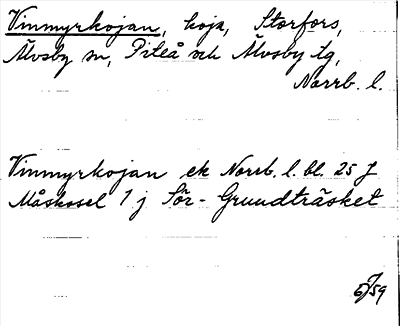 Vinmyrkojan, koja, Storfors,
Älvsby sn, Piteå och Älvsby tg,
Norrb. l.
Vinmyrkojan ek Norrb. l. bl. 25 J
Måskosel 1 j Sör-Grundträsket
6/59